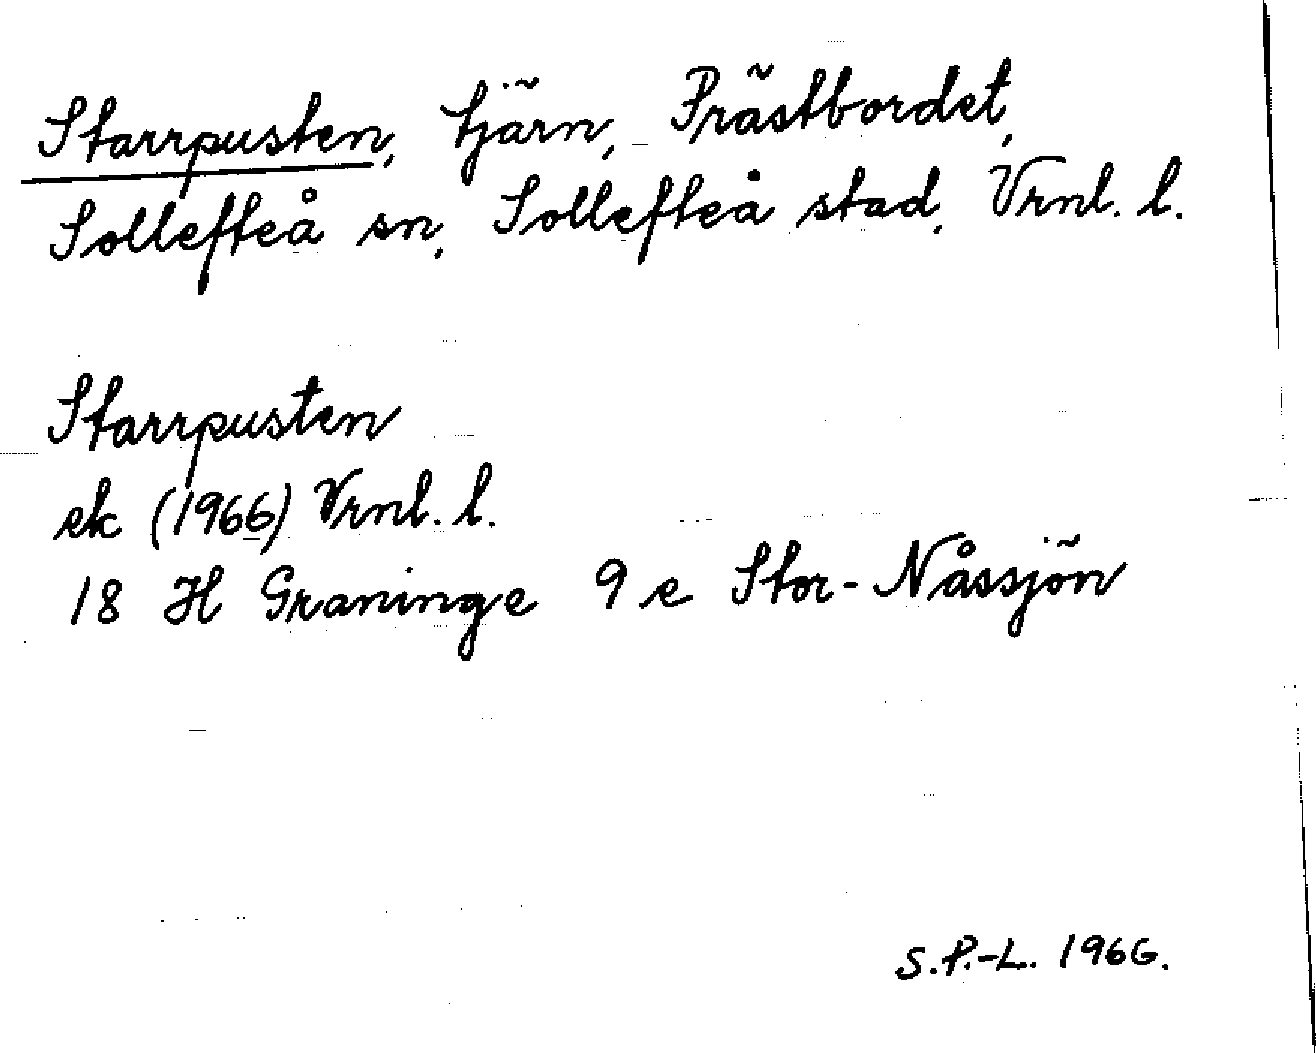 Starrpusten, tjärn, Prästbordet,
Sollefteå sn, Sollefteå stad, Vrnl. l.
Starrpusten
ek (1966) Vrnl. l.
18 H Graninge 9 e Stor-Nåssjön
S.P.-L. 1966.